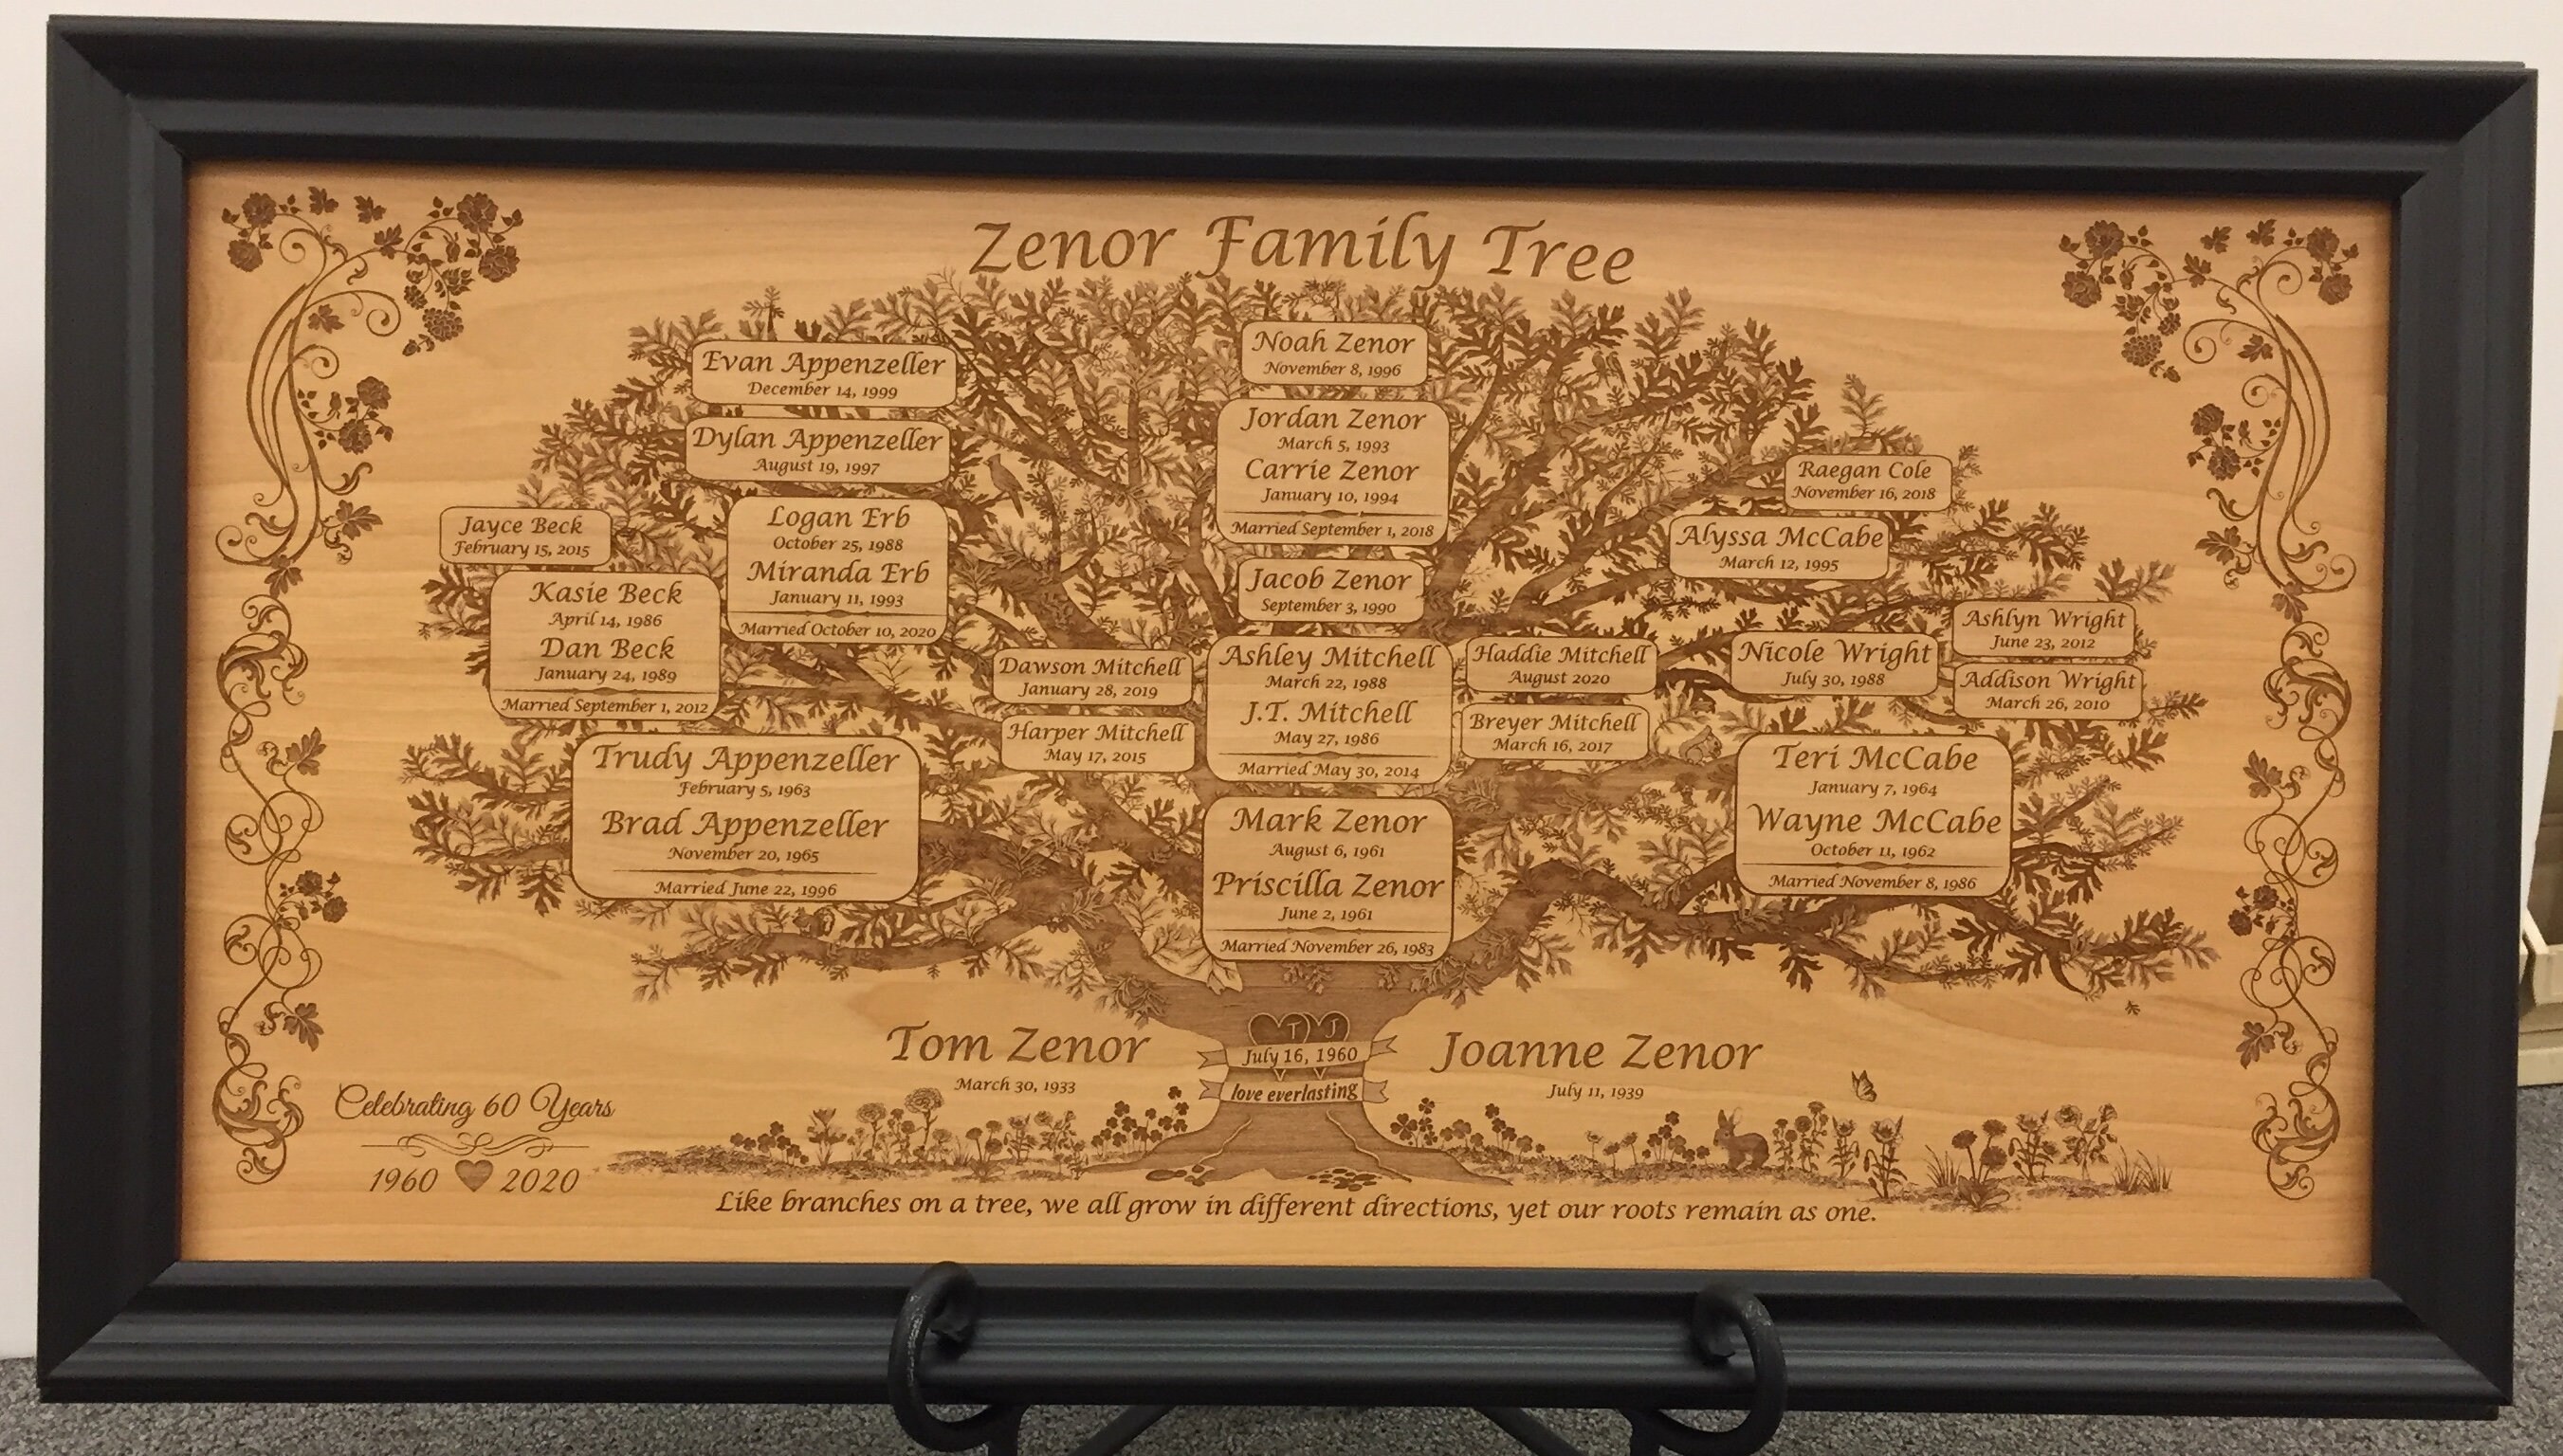 Zenor Family Tree
Evan Appenzeller
December 14, 1999
Dylan Appenzeller
August 19, 1997
Jayce Beck
February 15, 2015
Kasie Beck
April 14, 1986
Dan Beck
January 24, 1989
Married September 1, 2012
Logan Erb
October 25, 1988
Miranda Erb
January 11, 1993
Married October 10, 2020
Trudy Appenzeller
February 5, 1963
Brad Appenzeller
November 20, 1965
Married June 22, 1996
Noah Zenor
November 8, 1996
Jordan Zenor
March 5, 1993
Carrie Zenor
January 10, 1994
Married September 1, 2018
Jacob Zenor
September 3, 1990
Dawson Mitchell
January 28, 2019
Harper Mitchell
May 17, 2015
Ashley Mitchell
March 22, 1988
J.T. Mitchell
May 27, 1986
Married May 30, 2014
Haddie Mitchell
August 2020
Breyer Mitchell
March 16, 2017
Mark Zenor
August 6, 1961
Priscilla Zenor
June 2, 1961
Married November 26, 1983
Raegan Cole
November 16, 2018
Alyssa McCabe
March 12, 1995
Nicole Wright
July 30, 1988
Ashlyn Wright
June 23, 2012
Addison Wright
March 26, 2010
Teri McCabe
January 7, 1964
Wayne McCabe
October 11, 1962
Married November 8, 1986
Tom Zenor
March 30, 1933
T J
July 16, 1960
love everlasting
Joanne Zenor
July 11, 1939
Celebrating 60 Years
1960 2020
Like branches on a tree, we all grow in different directions, yet our roots remain as one.